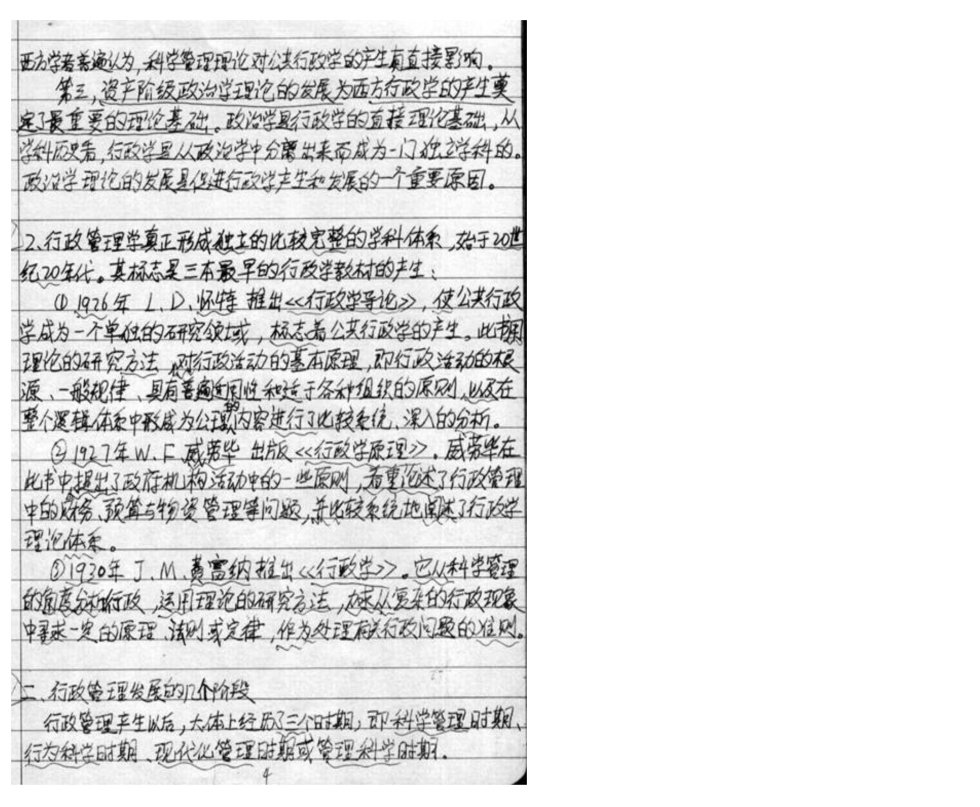 西方学者普遍认为,科学管理理论对公共行政学的产生有直接影响。
第三,资产阶级政治学理论的发展为西方行政学的产生奠
定了最重要的理论基础。政治学是行政学的直接理论基础,从
学科历史看,行政学是从政治学中分离出来而成为一门独立学科的。
政治学理论的发展是促进行政学产生和发展的一个重要原因。
2、行政管理学真正形成独立的比较完整的学科体系,始于20世
纪20年代。其标志是三本最早的行政学教材的产生:
① 1926年 L.D.怀特 推出<<行政学导论>>,使公共行政
学成为一个单独的研究领域,标志着公共行政学的产生。此书用
理论的研究方法,对行政活动的基本原理,即行政活动的根
源、一般规律、具有普遍适用性和适于各种组织的原则,以及在
整个逻辑体系中形成为公理的内容进行了比较系统、深入的分析。
② 1927年W.F.威劳毕 出版<<行政学原理>>。威劳毕在
此书中提出了政府机构活动中的一些原则,着重论述了行政管理
中的财务、预算与物资管理等问题,并比较系统地阐述了行政学
理论体系。
③1930年 J.M.费富纳 推出<<行政学>>。它从科学管理
的角度分析行政,运用理论的研究方法,力求从复杂的行政现象
中寻求一定的原理、法则或定律,作为处理有关行政问题的准则。
二、行政管理发展的几个阶段
行政管理产生以后,大体上经历了三个时期,即科学管理时期、
行为科学时期、现代化管理时期或管理科学时期。
4